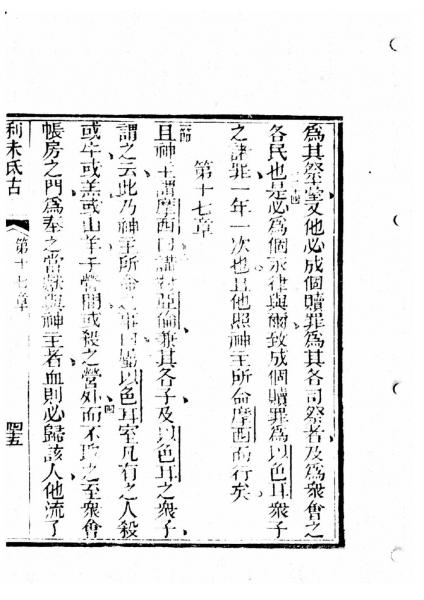 爲其祭室又他必成個贖罪爲其各司祭者及爲衆會之
各民也是必爲個永律與爾致成個贖罪爲以色耳衆子
之諸罪一年一次也且他照神主所命摩西而行矣
第十七章
且神主謂摩西曰講對亞倫兼其各子及以色耳之衆子
謂之云此乃神主所命之事曰屬以色耳室凡有之人殺
或牛或羔或山羊于營間或殺之營外而不取之至衆會
帳房之門爲奉之當獻與神主者血則必歸該人他流了
利未氏古
第十七章
四五